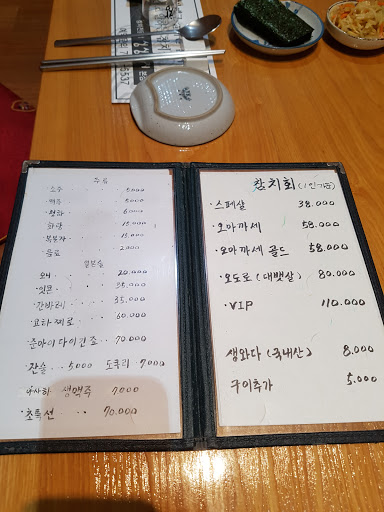 537
주류
· 소주 · · · 5.000
· 맥주 · · · 5.000
· 청하 · · · 6.000
화랑 · · · 15.000
· 복분자 · · · 15.000
· 음료 · · · 2000
일본술
· 오니 · · · 20.000
· 잇쿄 · · · 35.000
· 간바레 · · · 35.000
· 교하찌로 · · · 60.000
· 준마이다이긴죠 · · 70.000
· 잔술 · · 5000 도쿠리 7000
아사히 생맥주 7000
· 초특선 · · · 70.000
참치회 (1인기준)
· 스페살 38.000
· 오마까세 58.000
· 오마까세 골드 58.000
· 오도로 (대뱃살) 80.000
· VIP 110.000
생와다 (국내산) 8.000
구이추가 5.000